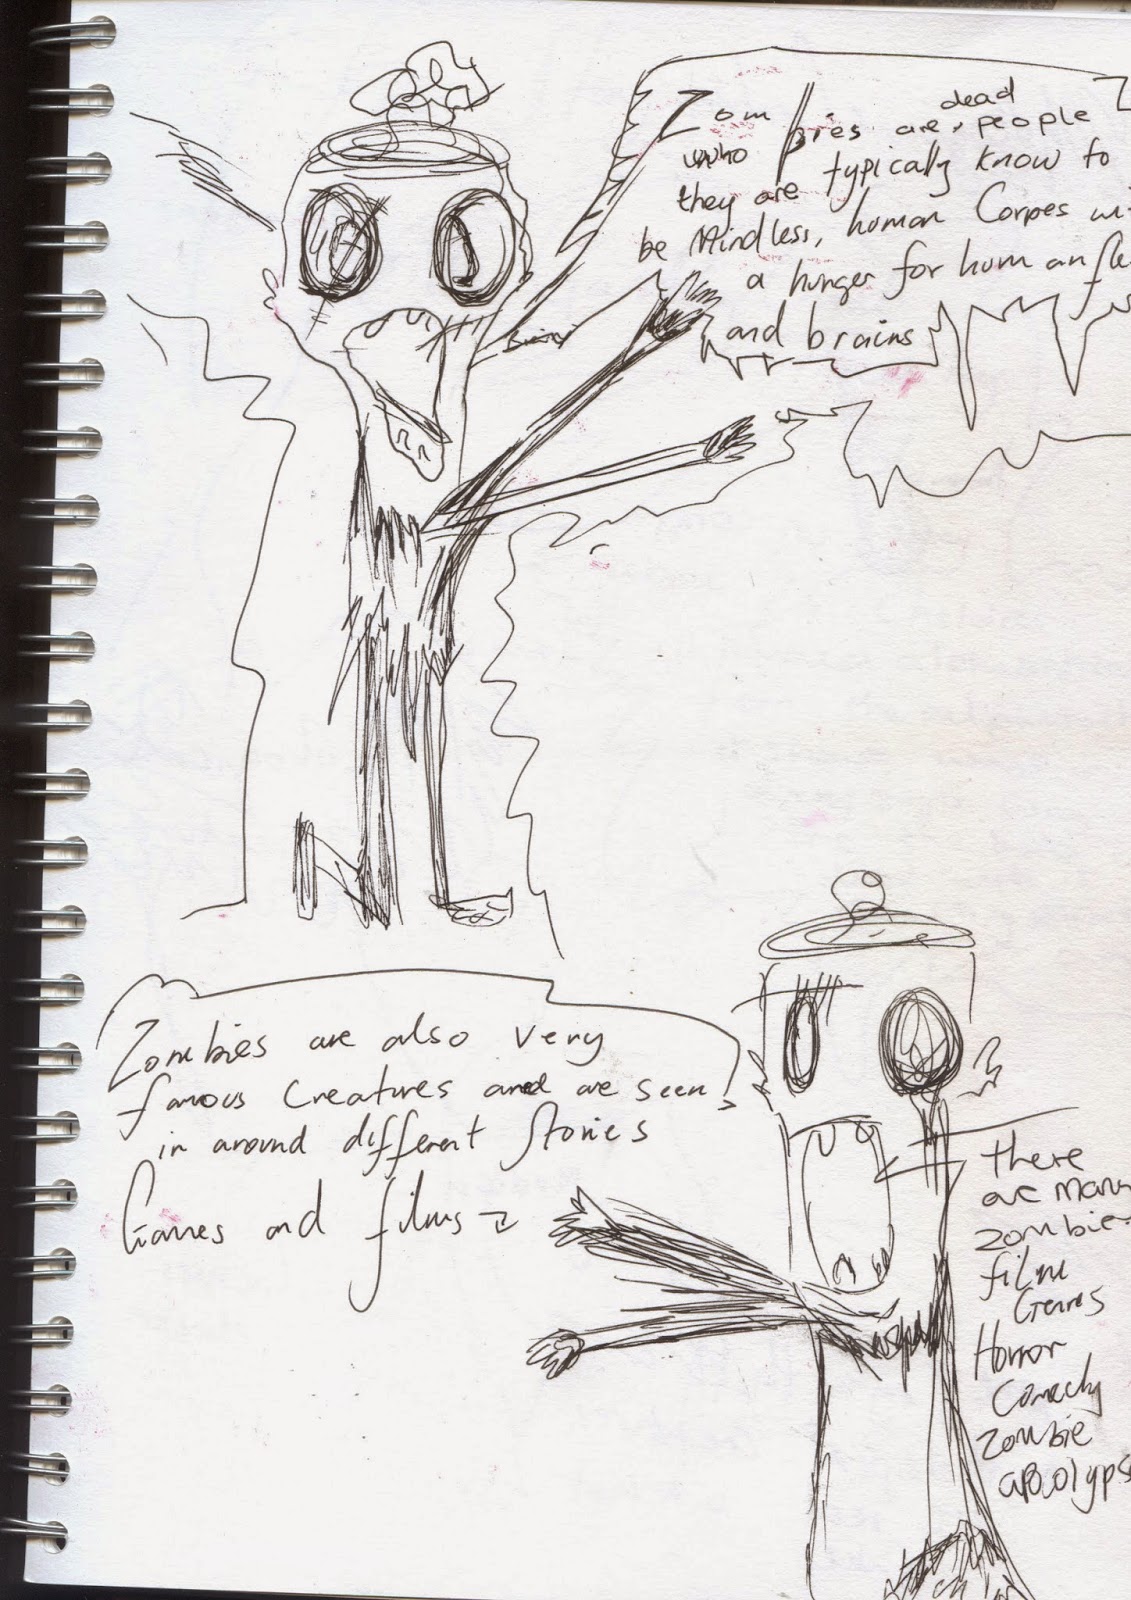 Zombies are dead people
who typically know to
they are
be Mindless, human Corpes
a hunger for human
and brains
Zombies are also very
famous Creatures and are seen
in around different Stories
Games and films
there
are many
zombie
film
Genres
Horror
Comedy
Zombie